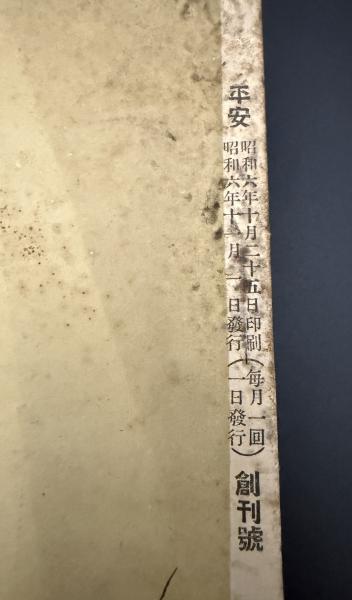 平安
昭和六年十月二十五日印刷
昭和六年十一月一日發行
(每月一回
一日發行)
創刊號